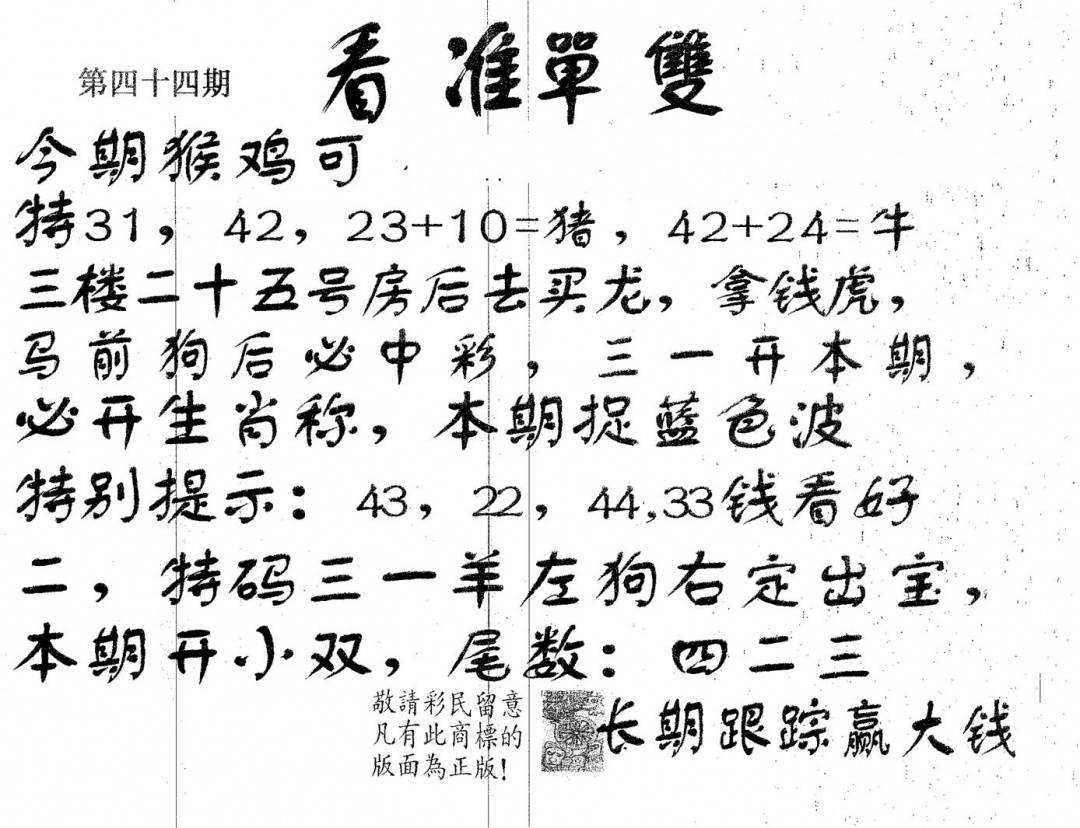 第四十四期
看准單雙
今期猴鸡可
特31，42，23+10=猪，42+24=牛
三楼二十五号房后去买龙，拿钱虎，
马前狗后必中彩，三一开本期，
必开生肖称，本期捉蓝色波
特别提示：43，22，44,33钱看好
二，特码三一羊左狗右定出宝，
本期开小双，尾数：四二三
敬請彩民留意
凡有此商標的
版面為正版！
长期跟踪赢大钱